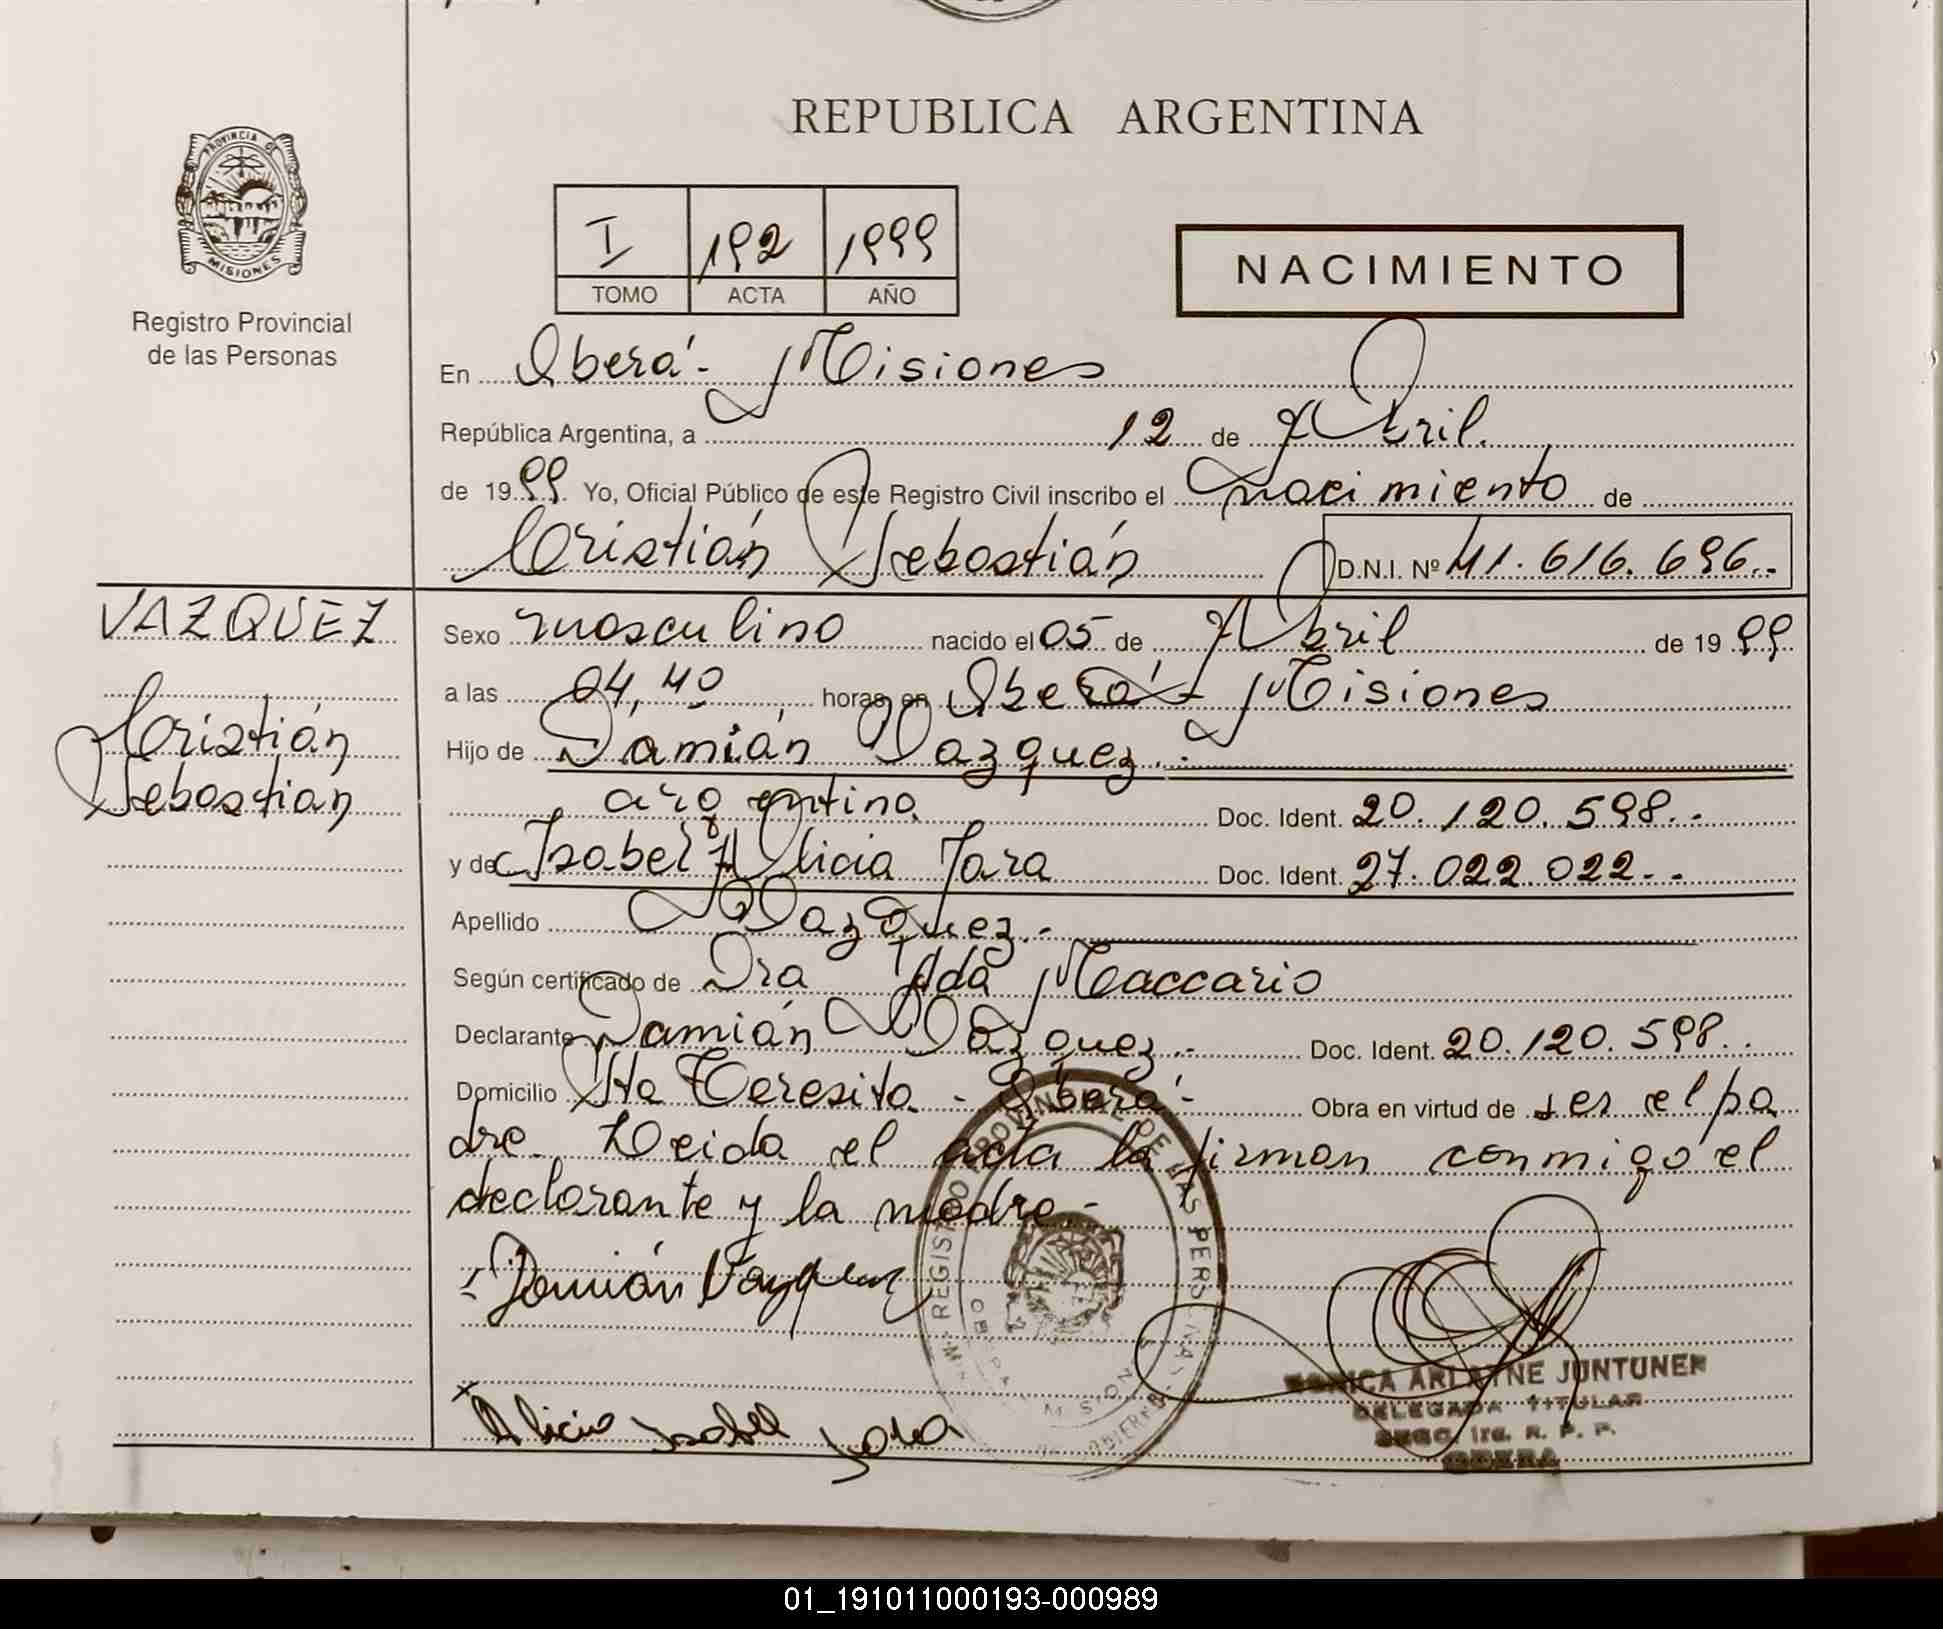 REPUBLICA ARGENTINA
PROVINCIA DE
MISIONES
Registro Provincial
de las Personas
I 192 1999
TOMO ACTA AÑO
NACIMIENTO
En Oberá - Misiones
República Argentina, a 12 de Abril.
de 1999. Yo, Oficial Público de este Registro Civil inscribo el nacimiento de
Cristián Sebastián D.N.I. Nº 41.616.696.-
VAZQUEZ
Cristián
Sebastian
Sexo masculino nacido el 05 de Abril de 1999
a las 04,40 horas en Oberá - Misiones
Hijo de Damián Vazquez.-
argentino Doc. Ident. 20.120.598.-
y de Isabel Alicia Jara Doc. Ident. 27.022.022.-
Apellido Vazquez.-
Según certificado de Dra Ada Maccario
Declarante Damián Vazquez.- Doc. Ident. 20.120.598.-
Domicilio Sta Teresita - Oberá.- Obra en virtud de ser el pa
dre. Leida el acta la firman conmigo el
declarante y la madre.-
Damián Vazquez
REGISTRO PROVINCIAL DE LAS PERSONAS
Alicia Isabel Jara
MONICA ARLAYNE JUNTUNEN
DELEGADA TITULAR
SECC. 1ra. R. P. P.
OBERA
01_191011000193-000989